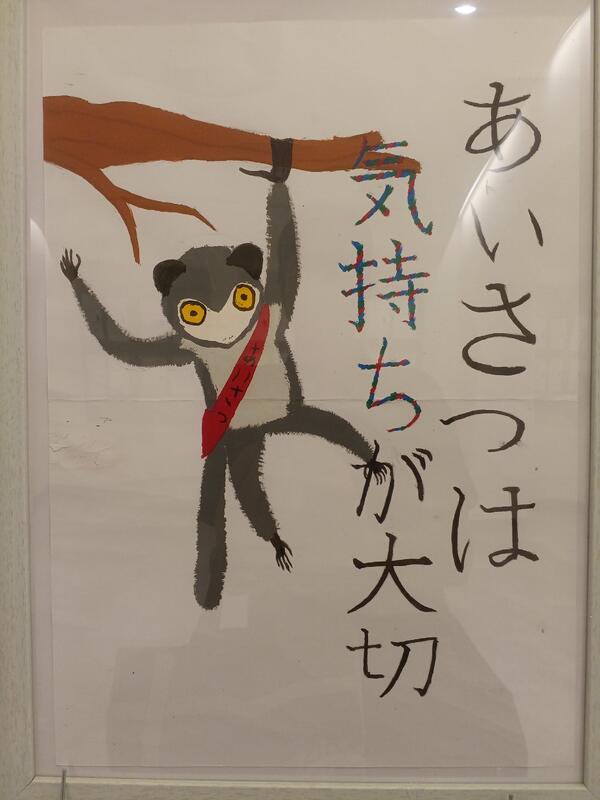 あいさつは
気持ちが大切
あいさつ